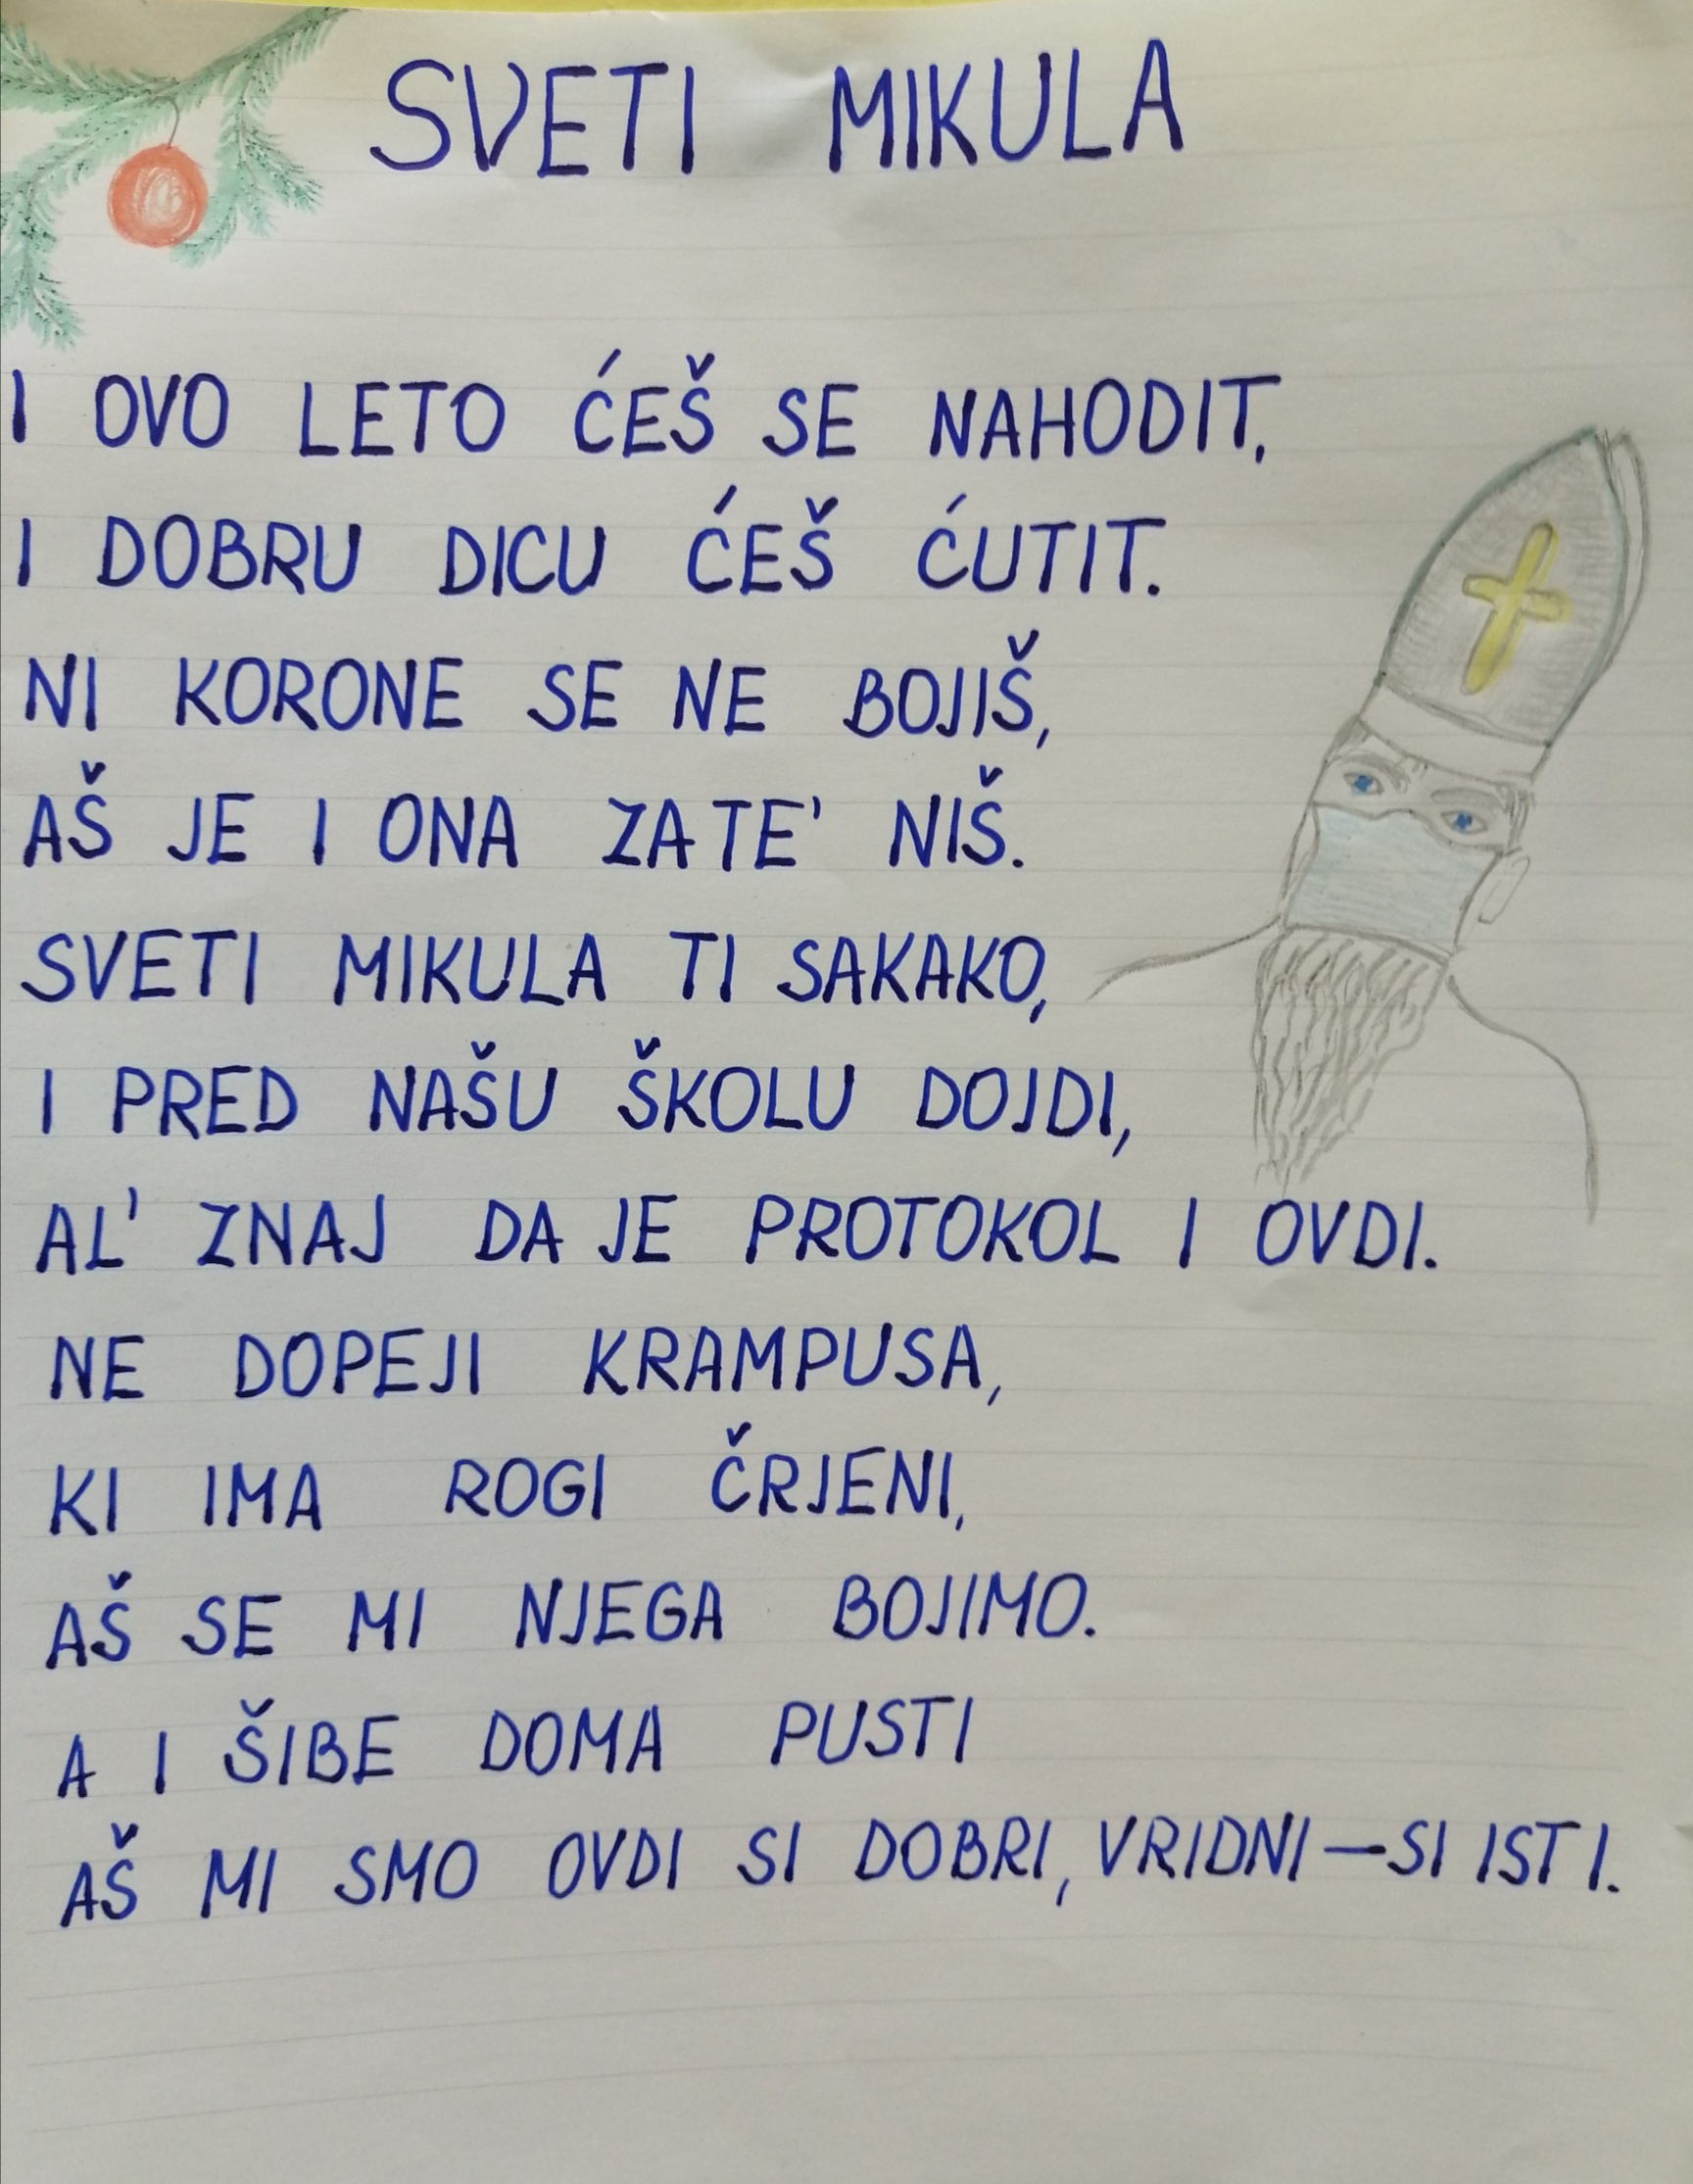 SVETI MIKULA
I OVO LETO ĆEŠ SE NAHODIT,
I DOBRU DICU ĆEŠ ĆUTIT.
NI KORONE SE NE BOJIŠ,
AŠ JE I ONA ZA TE' NIŠ.
SVETI MIKULA TI SAKAKO,
I PRED NAŠU ŠKOLU DOJDI,
AL' ZNAJ DA JE PROTOKOL I OVDI.
NE DOPEJI KRAMPUSA,
KI IMA ROGI ČRJENI,
AŠ SE MI NJEGA BOJIMO.
A I ŠIBE DOMA PUSTI
AŠ MI SMO OVDI SI DOBRI, VRIDNI – SI ISTI.